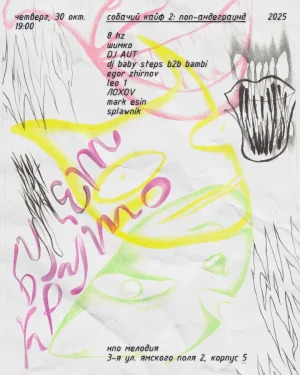 четверг, 30 окт.
19:00
собачий кайф 2: поп-андеграунд
2025
8 hz
шимко
DJ AUT
dj baby steps b2b bambi
egor zhirnov
leo 1
ЛОХОV
mark esin
splawnik
будет
нпо мелодия
3-я ул. ямского поля 2, корпус 5